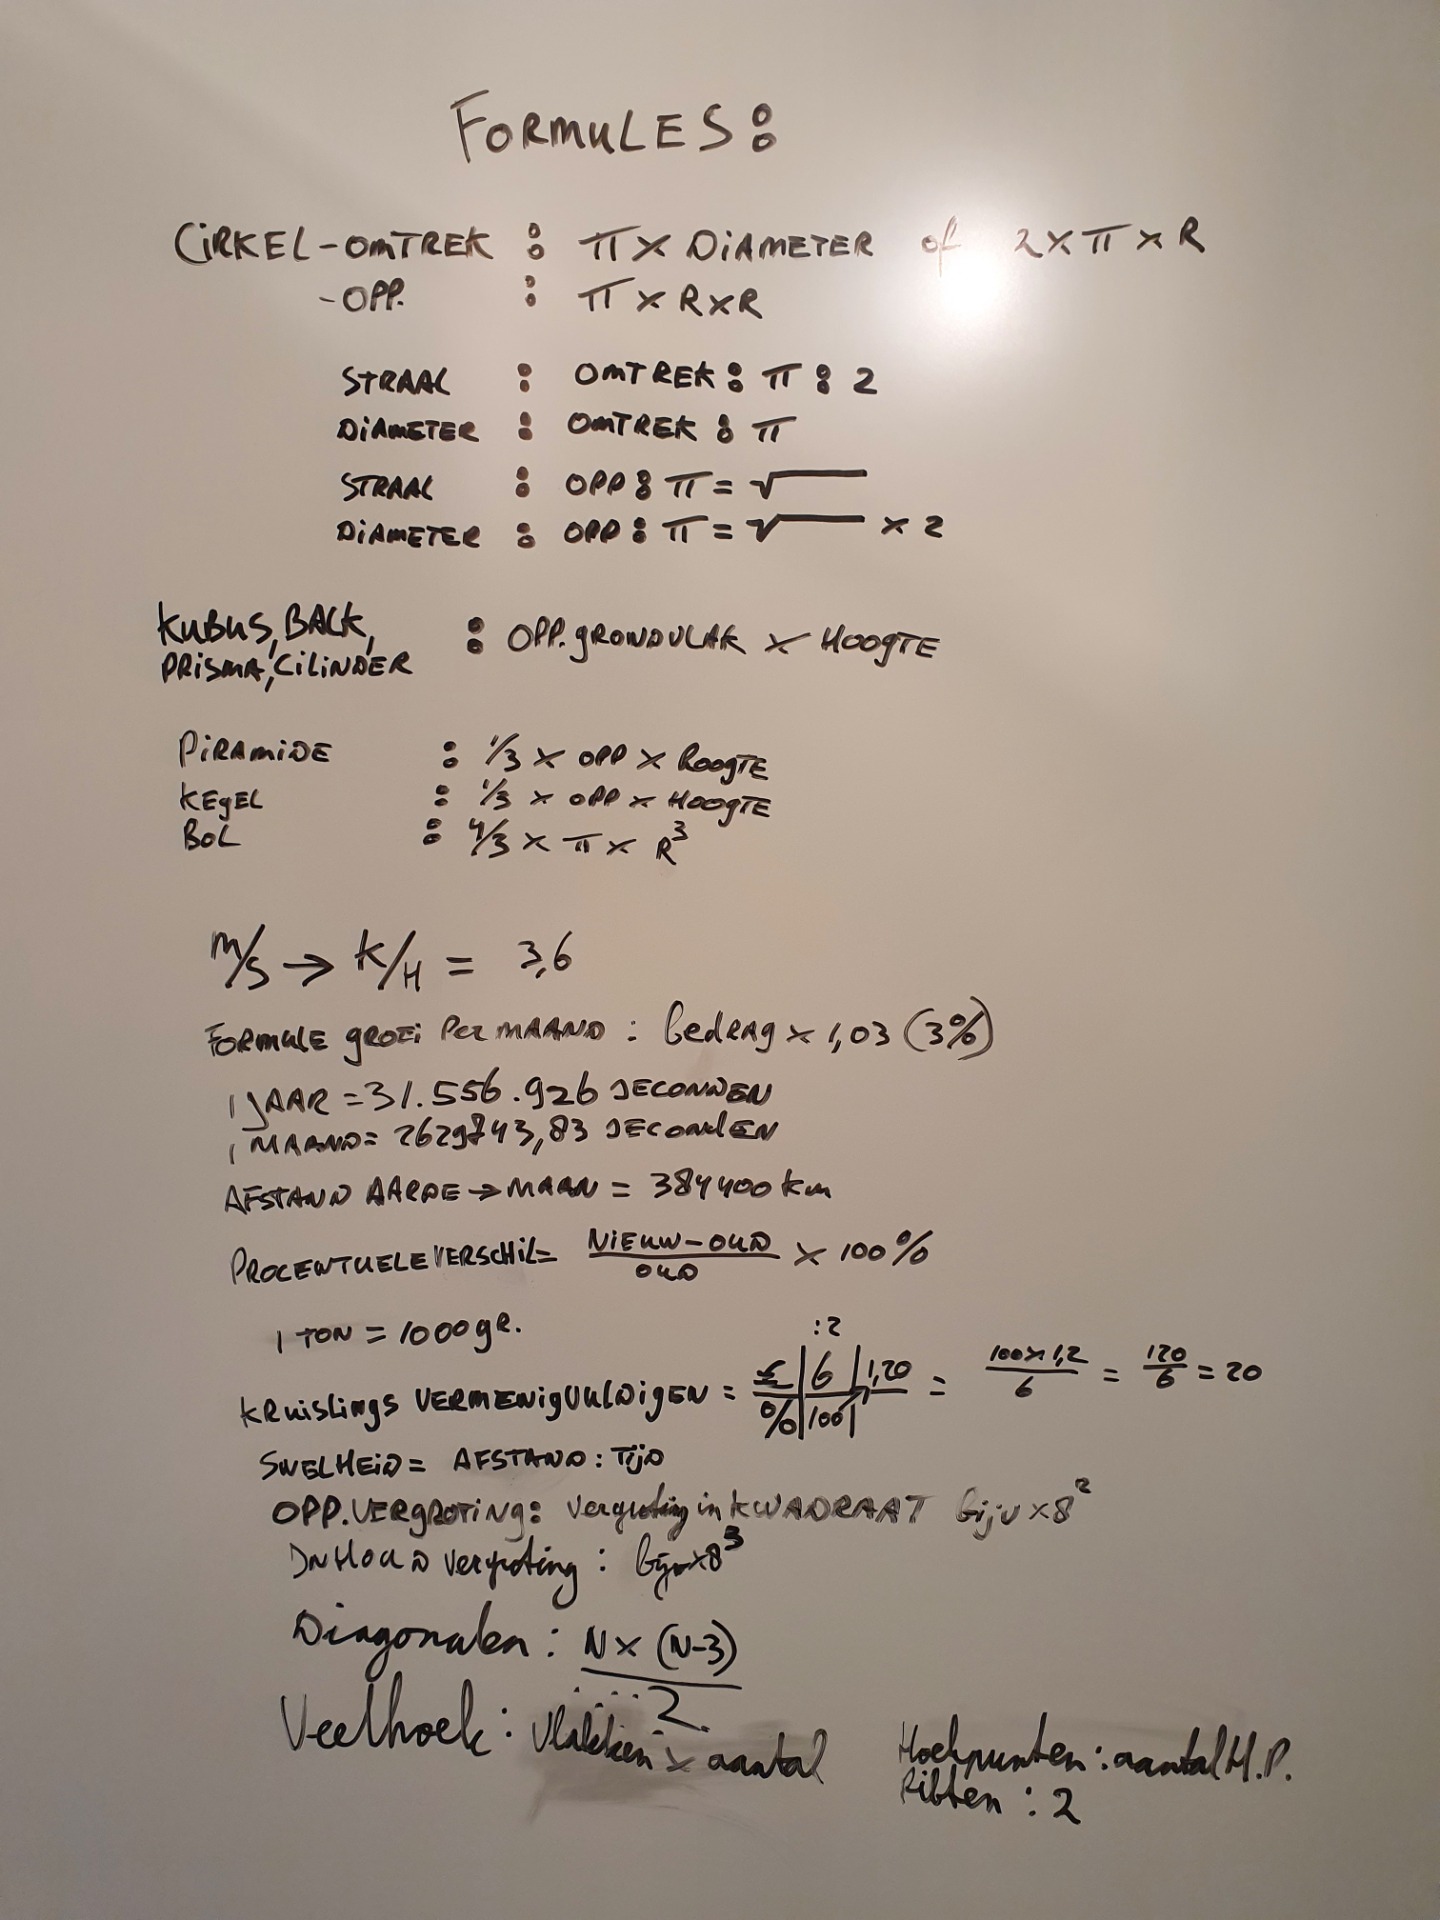 FORMULES:
CIRKEL-OMTREK : π x DIAMETER of 2 x π x R
-OPP. : π x R x R
STRAAL : OMTREK : π : 2
DIAMETER : OMTREK : π
STRAAL : OPP : π = √
DIAMETER : OPP : π = √ x 2
KUBUS, BALK,
PRISMA, CILINDER : OPP. GRONDVLAK x HOOGTE
PIRAMIDE : 1/3 x OPP x HOOGTE
KEGEL : 1/3 x OPP x HOOGTE
BOL : 4/3 x π x R³
m/s → K/H = 3,6
FORMULE GROEI Per MAAND : bedRAg x 1,03 (3%)
1 JAAR = 31.556.926 SECONDEN
1 MAAND = 2629743,83 SECONDEN
AFSTAND AARDE → MAAN = 384400 km
PROCENTUELE VERSCHIL = NIEUW - OUD / OUD x 100%
1 TON = 1000 gR.
:2
KRUISLINGS VERMENIGVULDIGEN = € | 6 | 1,20 = 100 x 1,2 / 6 = 120 / 6 = 20
% | 100 |
SNELHEID = AFSTAND : TIJD
OPP. VERGROTING : vergroting in KWADRAAT bijv x 8²
INHOUD vergroting : bijv x 8³
Diagonalen : N x (N-3)
2
Veelhoek : vlakken x aantal Hoekpunten : aantal H.P.
Ribben : 2